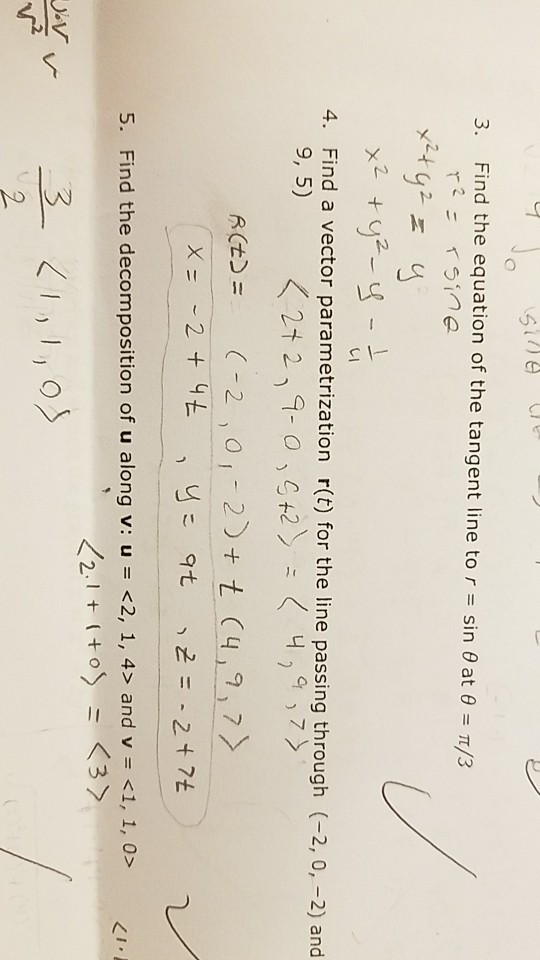 3. Find the equation of the tangent line to r = sin θ at θ = π/3
r² = r sinθ
x² + y² = y
x² + y² - y - 1/4
4. Find a vector parametrization r(t) for the line passing through (−2, 0, −2) and
9, 5)
⟨2+2, 9-0, 5+2⟩ = ⟨4, 9, 7⟩
R(t) = (-2, 0, -2) + t (4, 9, 7⟩
x = -2 + 4t , y = 9t , z = -2 + 7t
5. Find the decomposition of u along v: u = <2, 1, 4> and v = <1, 1, 0>
⟨2·1 + 1 + 0⟩ = ⟨3⟩
3/2 ⟨1, 1, 0⟩